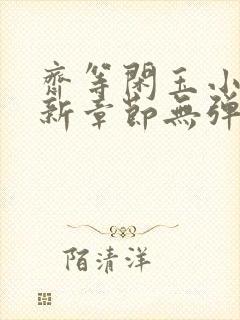 齋等閑玉小
新章節無彈
陌清洋